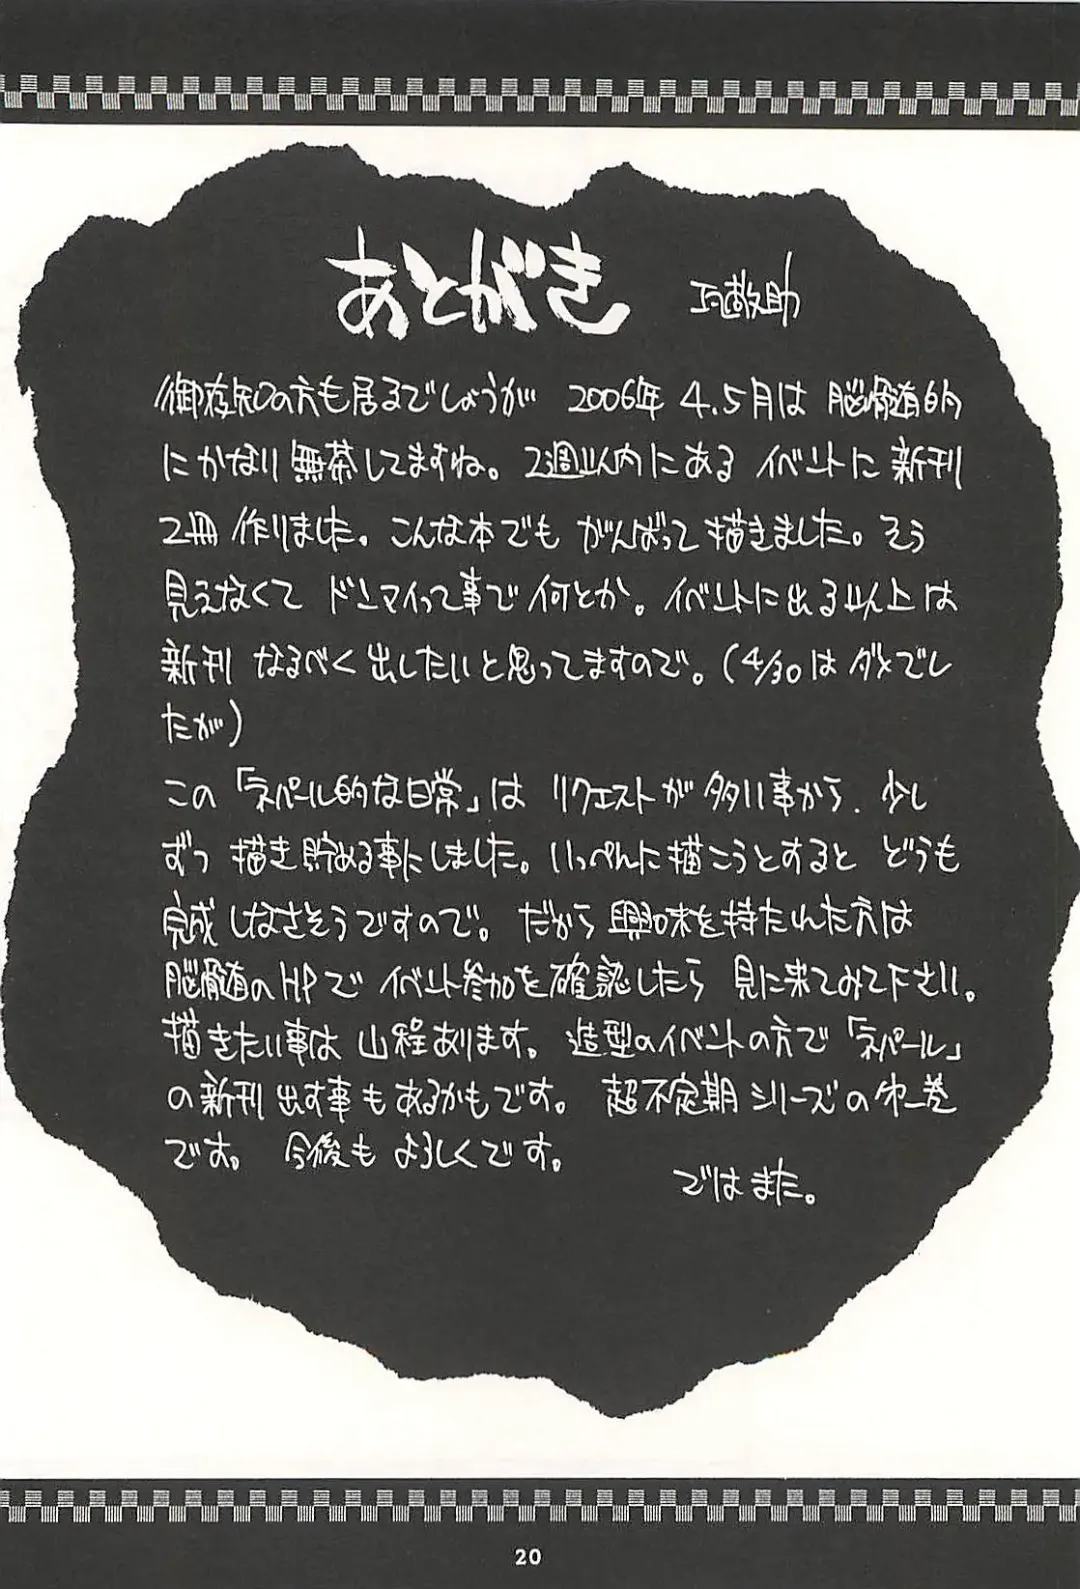 あとがき
御存知の方も居るでしょうが 2006年 4.5月は 脳髄的
にかなり無茶してますね。2週以内にある イベントに 新刊
2冊 作りました。こんな本でも がんばって描きました。そう
見えなくて ドンマイって事で何とか。イベントに出る以上は
新刊 なるべく出したいと思ってますので。(4/30はダメでし
たが)
この「ネパール的な日常」は リクエストが多い事から、少し
ずつ 描き貯める事にしました。いっぺんに描こうとすると どうも
完成しなさそうですので。だから 興味を持たれた方は
脳髄のHPで イベント参加を確認したら 見に来てみて下さい。
描きたい事は 山程あります。造型のイベントの方で「ネパール」
の新刊 出す事もあるかもです。 超不定期シリーズの第一巻
です。 今後も よろしくです。
ではまた。
20